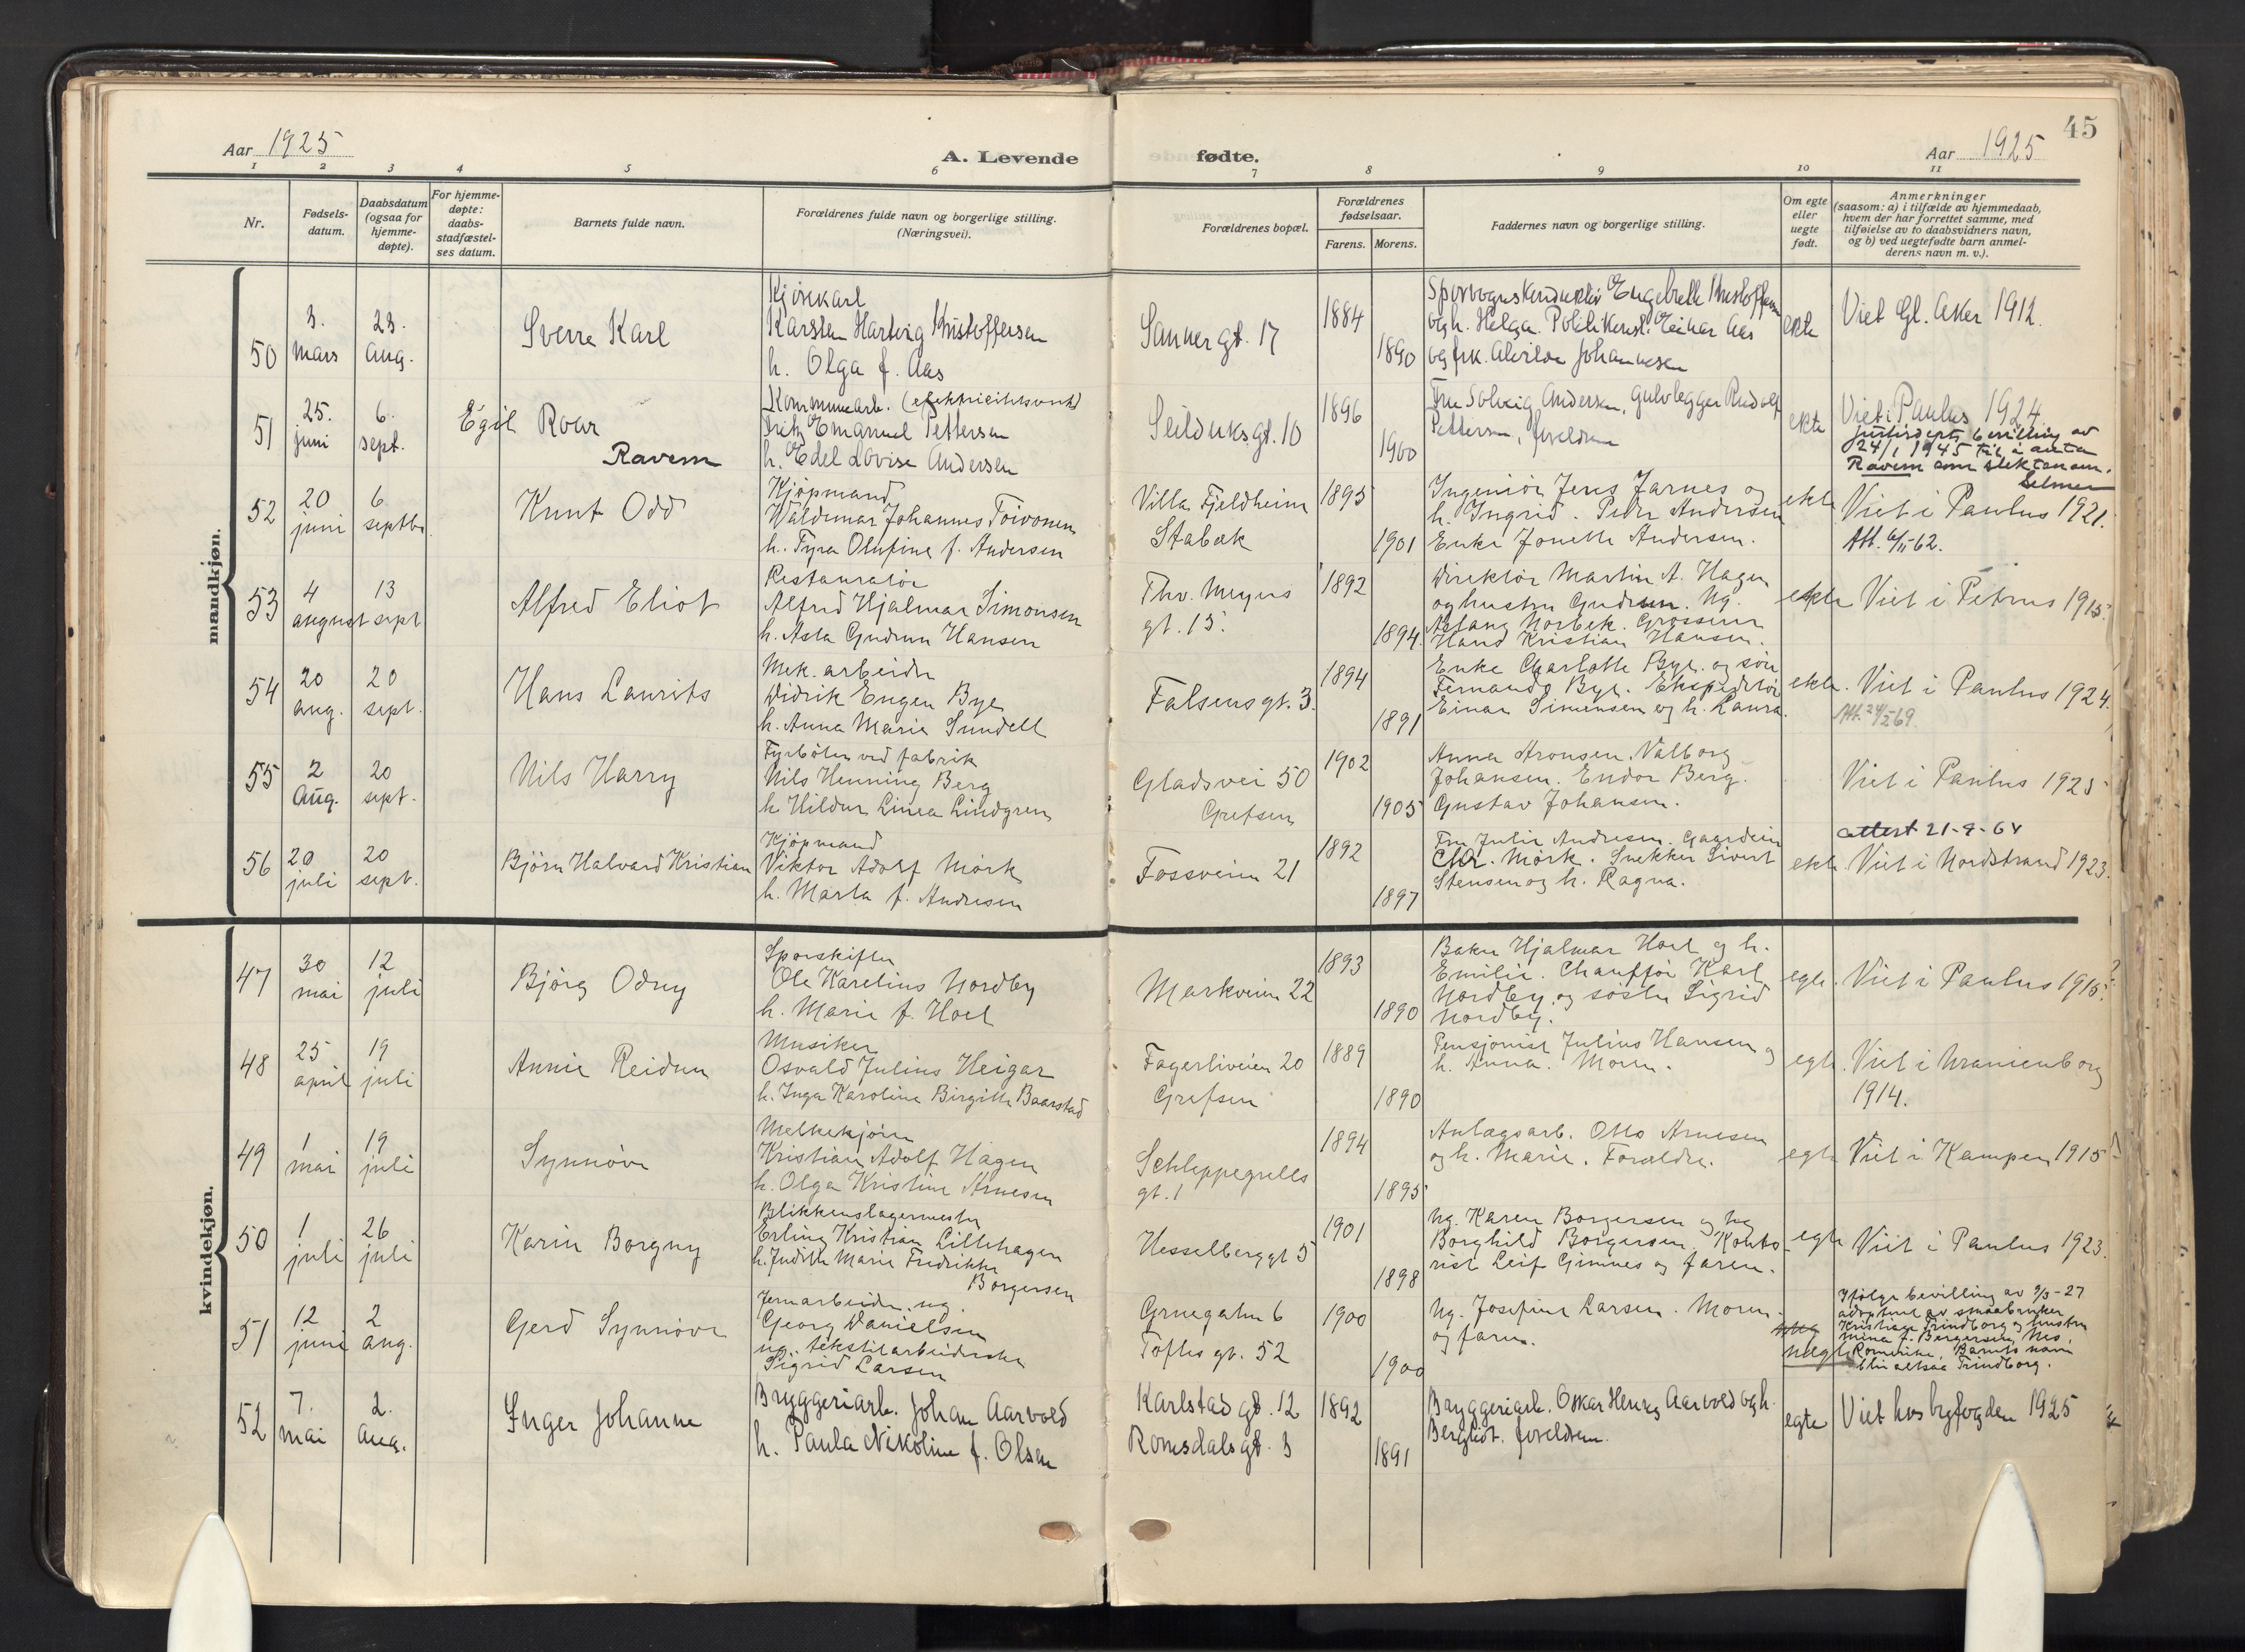 45
Aar 1925
A. Levende
fødte.
Aar 1925
1 2 3 4 5 6 7 8 9 10 11
Nr.
Fødsels-
datum.
Daabsdatum
(ogsaa for
hjemme-
døpte).
For hjemme-
døpte:
daabs-
stadfæstel-
ses datum.
Barnets fulde navn.
Forældrenes fulde navn og borgerlige stilling.
(Næringsvei).
Forældrenes bopæl.
Forældrenes
fødselsaar.
Farens. Morens.
Faddernes navn og borgerlige stilling.
Om egte
eller
uegte
født.
Anmerkninger
(saasom: a) i tilfælde av hjemmedaab,
hvem der har forrettet samme, med
tilføielse av to daabsvidners navn,
og b) ved uegtefødte barn anmel-
derens navn m. v.).
mandkjøn.
50
3.
mars
23.
aug.
Sverre Karl
Kjørekarl
Karsten Hartvig Kristoffersen
h. Olga f. Aas
Sanner gt. 17
1884
1890
Sporvognskonduktør Engebrett Kristoffersen
og h. Helga. Politikonst. Einar Aas
og frk. Alvilde Johannesen
ekte
Viet Gl. Aker 1912.
51
25.
juni
6.
sept.
Egil Roar
Ravem
Kommunearb. (elektricitetsverk)
Fritz Emanuel Pettersen
h. Edel Lovise Andersen
Seilduksgt. 10
1896
1900
Fru Solveig Andersen, gulvlegger Rudolf
Pettersen, foreldrene
ekte
Viet i Paulus 1924
Justisdepts bevilling av
24/1 1945 til å anta
Ravem som slektsnavn.
Selmer
52
20
juni
6
septbr
Knut Odd
Kjøpmand
Waldemar Johannes Toivonen
h. Tyra Olufine f. Andersen
Villa Fjeldheim
Stabæk
1895
1901
Ingeniør Jens Jarnes og
h. Ingrid. Peder Andersen
Enke Jonette Andersen.
ekte
Viet i Paulus 1921.
Att. 6/11-62.
53
4
august
13
sept
Alfred Eliot
Restauratør
Alfred Hjalmar Simonsen
h. Asta Gudrun Hansen
Thv. Meyers
gt. 15.
1892
1894.
Direktør Martin A. Hagen
og hustru Gudrun. Ug.
Aslaug Norbek. Grosserer
Hans Kristian Hansen.
ekte
Viet i Petrus 1915.
54
20
aug.
20
sept.
Hans Laurits
Mek. arbeider
Didrik Eugen Bye
h. Anna Marie Sundell
Falsensgt. 3.
1894
1891
Enke Charlotte Bye og søn
Fernando Bye. Ekspeditør
Einar Simensen og h. Laura.
ekte.
Viet i Paulus 1924.
55
2
Aug.
20
sept.
Nils Harry
Fyrbøter ved fabrik
Nils Henning Berg
h. Hildur Linea Lindgren
Gladsvei 50
Grefsen
1902
1905
Anna Aronsen. Valborg
Johansen. Endor Berg.
Gustav Johansen.
Viet i Paulus 1925
56
20
juli
20
sept.
Bjørn Halvard Kristian
Kjøpmand
Viktor Adolf Mørk
h. Marta f. Andresen
Fossveien 21
1892
1897
Fru Julie Andresen. Gaardeier
Chr. Mørk. Snekker Sivert
Stensen og h. Ragna.
ekte
attest 21-9-64
Viet i Nordstrand 1923.
kvindekjøn.
47
30
mai
12
juli
Bjørg Odny
Sporskifter
Ole Karelius Nordby
h. Marie f. Hoel
Markveien 22
1893
1890
Baker Hjalmar Hoel og h.
Emilie. Chauffør Karl
Nordby og søster Sigrid
Nordby.
egte.
Viet i Paulus 1915.
48
25
april
19
juli
Annie Reidun
Musiker
Osvald Julius Heigar
h. Inga Karoline Birgitte Baarstad
Fagerliveien 20
Grefsen
1889
1890
Pensjonist Julius Hansen og
h. Anna. Moren.
egte.
Viet i Uranienborg
1914.
49
1
mai
19
juli
Synnøve
Melkekjører
Kristian Adolf Hagen
h. Olga Kristine Arnesen
Schleppegrells
gt. 1
1894
1895
Anlægsarb. Otto Arnesen
og h. Marie. Forældre.
egte
Viet i Kampen 1915
50
1
juli
26
juli
Karin Borgny
Blikkenslagermester
Erling Kristian Lillehagen
h. Judith Marie Fredrikke
Borgersen
Hesselberggt 5
1901
1898
Ug. Karen Borgersen og ug
Borghild Borgersen. Konto-
rist Leif Gimnes og faren.
egte
Viet i Paulus 1923.
51
12
juni
2
aug.
Gerd Synnøve
Jernarbeider, ug.
Georg Danielsen
ug. tekstilarbeiderske
Sigrid Larsen
Gruegaten 6
Toftes gt. 52
1900
1900
Ug. Josefine Larsen. Moren
og faren.
uegte
Ifølge bevilling av 9/3-27
adoptert av smaabruker
Kristian Trindborg og hustru
Mina f. Bergersen, Nes,
Romerike. Barnets navn
blir altsaa Trindborg.
52
7.
mai
2.
Aug.
Inger Johanne
Bryggeriarb. Johan Aarvold
h. Paula Nikoline f. Olsen
Karlstad gt. 12
Romsdalsgt. 3
1892
1891
Bryggeriarb. Oskar Henry Aarvold og h.
Bergliot. foreldrene.
egte
Viet hos byfogden 1925